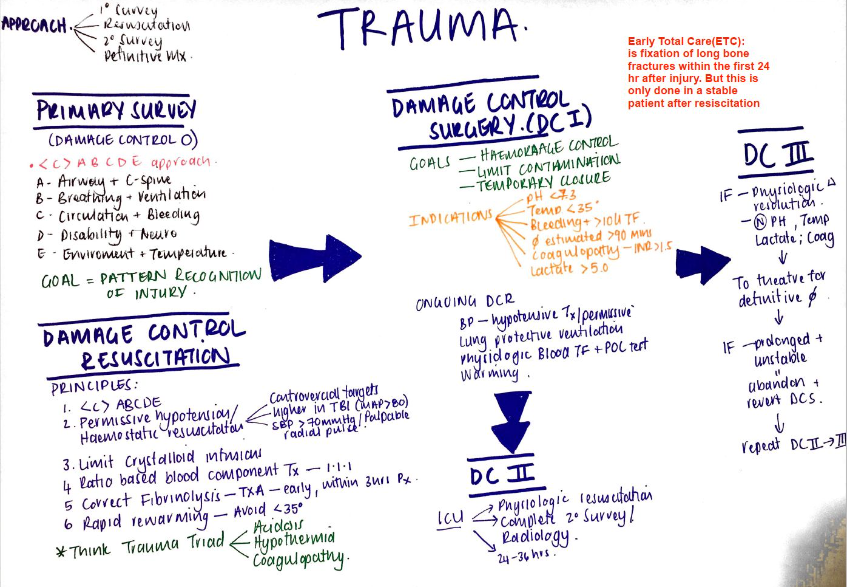 TRAUMA.
APPROACH.
1° Survey
Resuscitation
2° Survey
Definitive Mx.
Early Total Care(ETC):
is fixation of long bone
fractures within the first 24
hr after injury. But this is
only done in a stable
patient after resiscitation
PRIMARY SURVEY
(DAMAGE CONTROL O)
• <C> A B C D E approach.
A - Airway + C-spine
B - Breathing + Ventilation
C - Circulation + Bleeding
D - Disability + Neuro
E - Enviroment + Temperature.
GOAL = PATTERN RECOGNITION
OF INJURY.
DAMAGE CONTROL
RESUSCITATION
PRINCIPLES:
1. <C> ABCDE
2. Permissive hypotension/
Haemostatic resuscitation
Controvercial targets
higher in TBI (MAP>80)
SBP >70mmHg/Palpable
radial pulse.
3. Limit Crystalloid infusions
4 Ratio based blood component Tx – 1:1:1
5 Correct Fibrinolysis – TXA – early, within 3hrs Px.
6 Rapid rewarming – Avoid <35°
* Think Trauma Triad
Acidosis
Hypothermia
Coagulopathy.
DAMAGE CONTROL
SURGERY. (DC I)
GOALS
– HAEMORAAGE CONTROL
– LIMIT CONTAMINATION
– TEMPORARY CLOSURE
INDICATIONS
pH <7.3
Temp <35°
Bleeding + >10U TF.
Ø estimated >90 mins
Coagulopathy – INR>1.5
Lactate >5.0
ONGOING DCR
BP – hypotensive Tx/permissive
Lung protective ventilation
Physiologic Blood TF + POC test
Warming.
DC II
ICU
Physiologic resuscitation
Complete 2° Survey/
Radiology.
24-36 hrs.
DC III
IF – Physiologic Δ
resolution.
– Ⓝ PH, Temp
Lactate; Coag
↓
To theatre for
definitive Ø.
↓
IF – prolonged +
unstable
"
abandon +
revert DCS.
↓
repeat DC II → III